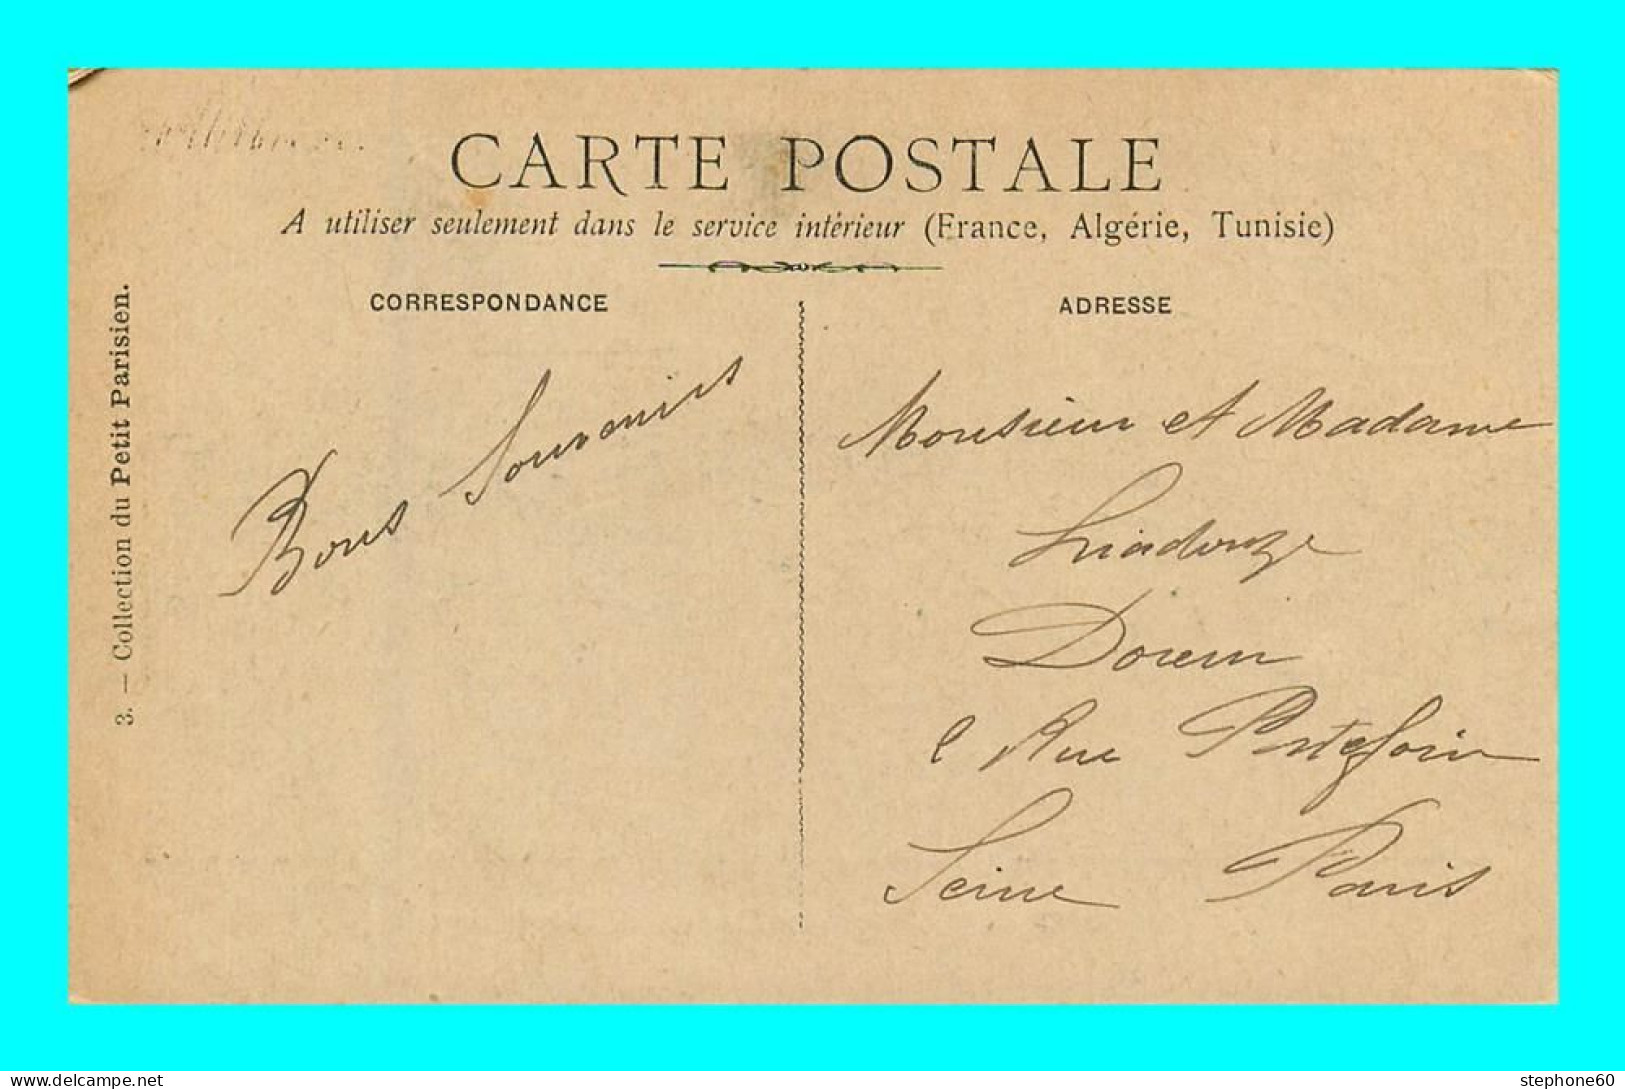 CARTE POSTALE
A utiliser seulement dans le service intérieur (France, Algérie, Tunisie)
CORRESPONDANCE
ADRESSE
3. — Collection du Petit Parisien.
Bons Souvenirs
Monsieur et Madame
Rue Portefoin
Seine Paris
stephone60